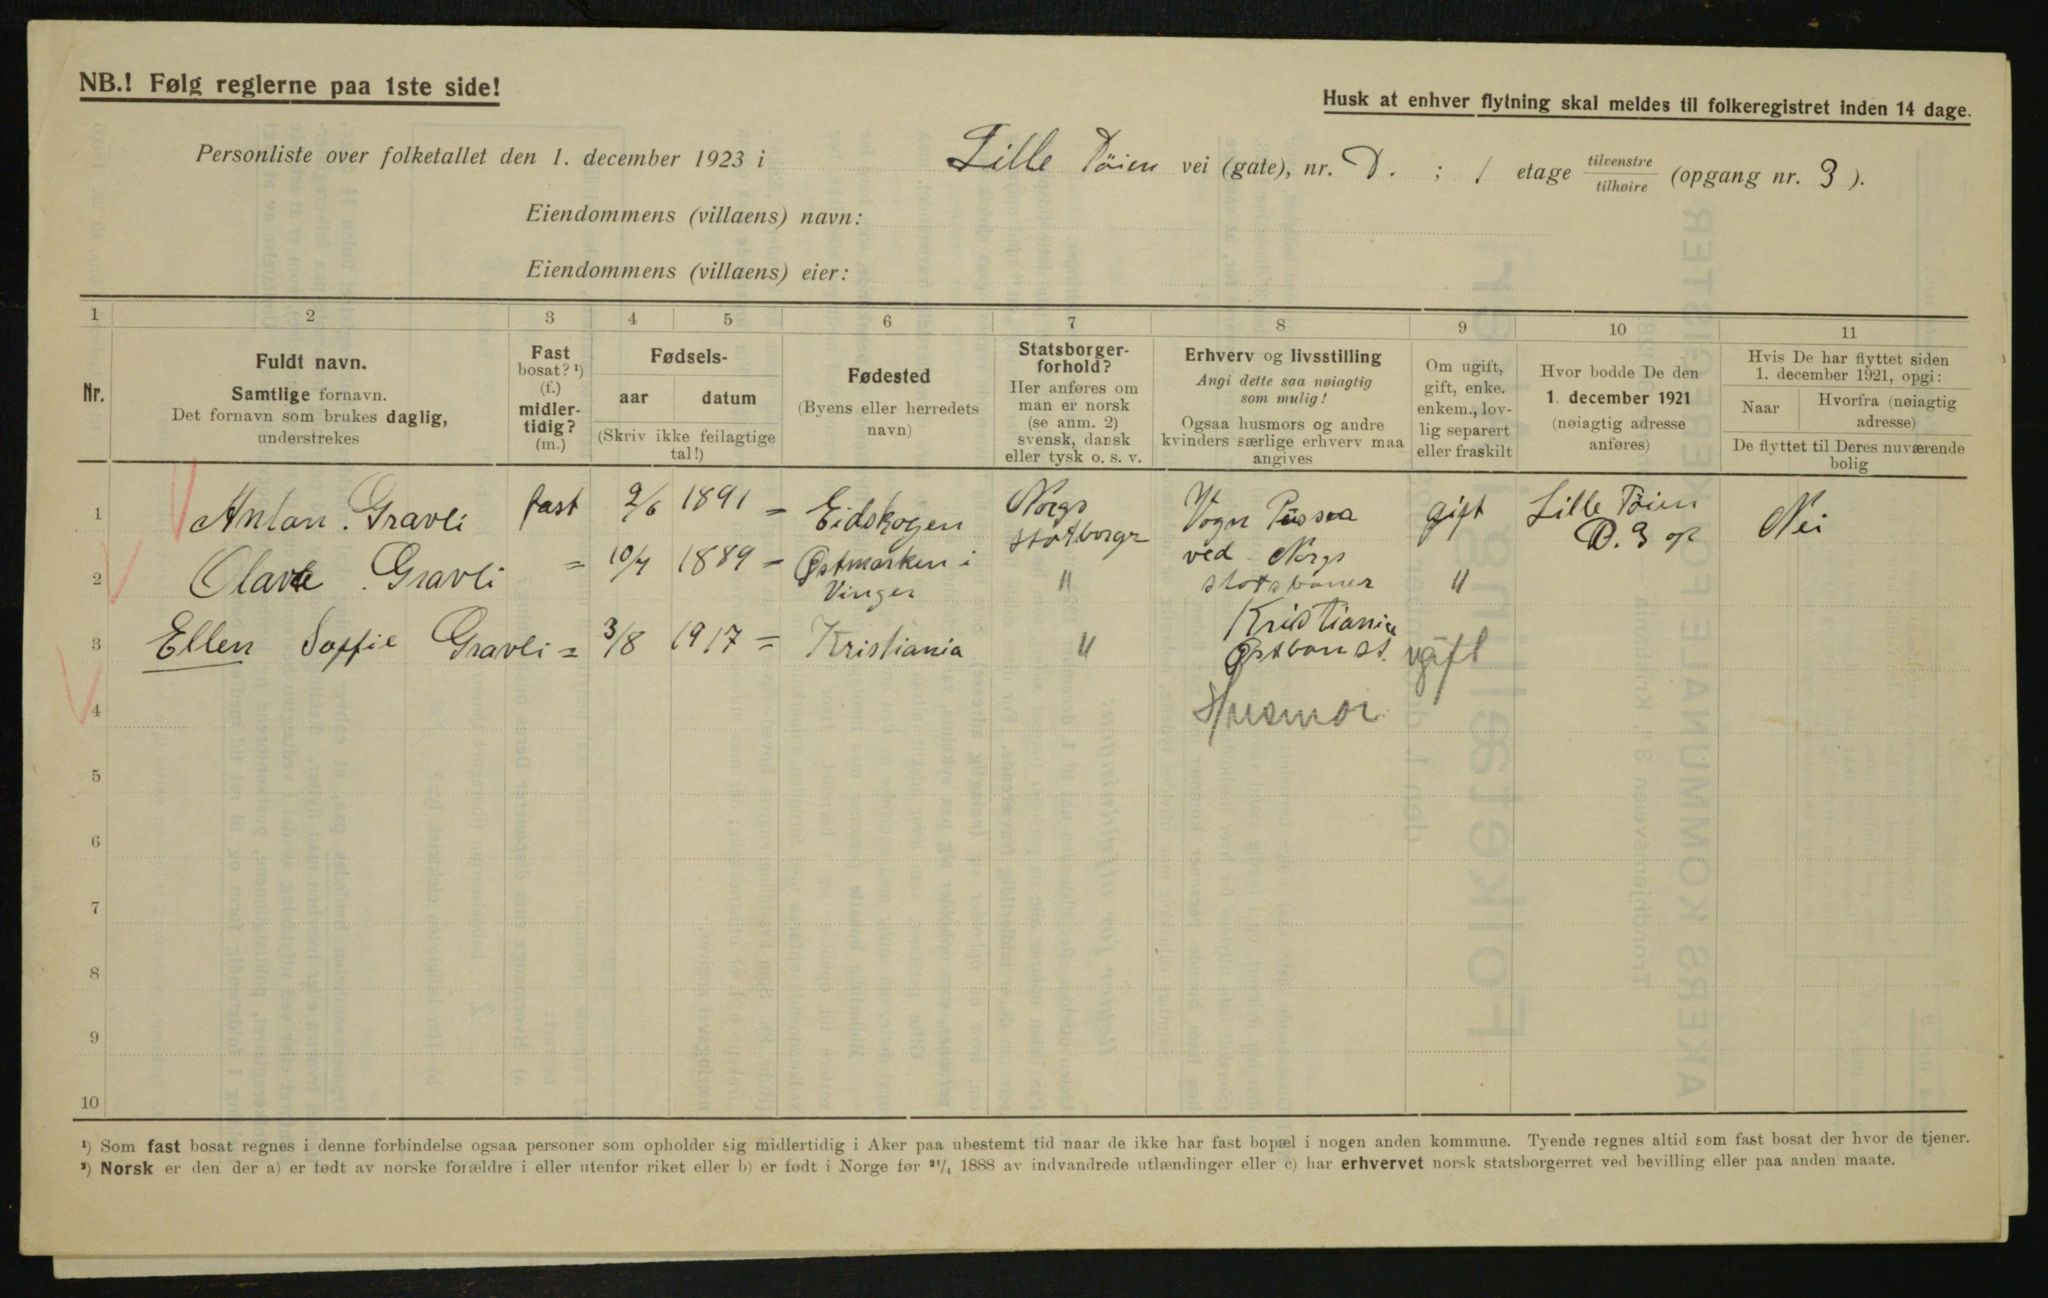 NB.! Følg reglerne paa 1ste side!
Husk at enhver flytning skal meldes til folkeregistret inden 14 dage.
Personliste over folketallet den 1. december 1923 i Lille Tøien vei (gate), nr. D. ; 1 etage tilvenstre/tilhøire (opgang nr. 3).
Eiendommens (villaens) navn:
Eiendommens (villaens) eier:
1 2 3 4 5 6 7 8 9 10 11
Nr.
Fuldt navn.
Samtlige fornavn.
Det fornavn som brukes daglig,
understrekes
Fast
bosat? ¹)
(f.)
midler-
tidig?
(m.)
Fødsels-
aar datum
(Skriv ikke feilagtige
tal!)
Fødested
(Byens eller herredets
navn)
Statsborger-
forhold?
Her anføres om
man er norsk
(se anm. 2)
svensk, dansk
eller tysk o. s. v.
Erhverv og livsstilling
Angi dette saa nøiagtig
som mulig!
Ogsaa husmors og andre
kvinders særlige erhverv maa
angives
Om ugift,
gift, enke.
enkem., lov-
lig separert
eller fraskilt
Hvor bodde De den
1. december 1921
(nøiagtig adresse
anføres)
Hvis De har flyttet siden
1. december 1921, opgi:
Naar
Hvorfra (nøiagtig
adresse)
De flyttet til Deres nuværende
bolig
1 Anton Gravli fast 2/6 1891 = Eidskogen Norgs statborgr Vogn Pussa gift Lille Tøien D. 3 op Nei
ved Norgs
2 Olave Gravli = 10/7 1889 = Østmarken i Vinger " statsbaner "
Kristiania
3 Ellen Soffie Gravli = 3/8 1917 = Kristiania " Østbanst. ugift
4 Husmor
5
6
7
8
9
10
¹) Som fast bosat regnes i denne forbindelse ogsaa personer som opholder sig midlertidig i Aker paa ubestemt tid naar de ikke har fast bopæl i nogen anden kommune. Tyende regnes altid som fast bosat der hvor de tjener.
²) Norsk er den der a) er født av norske forældre i eller utenfor riket eller b) er født i Norge før ²¹/₄ 1888 av indvandrede utlændinger eller c) har erhvervet norsk statsborgerret ved bevilling eller paa anden maate.